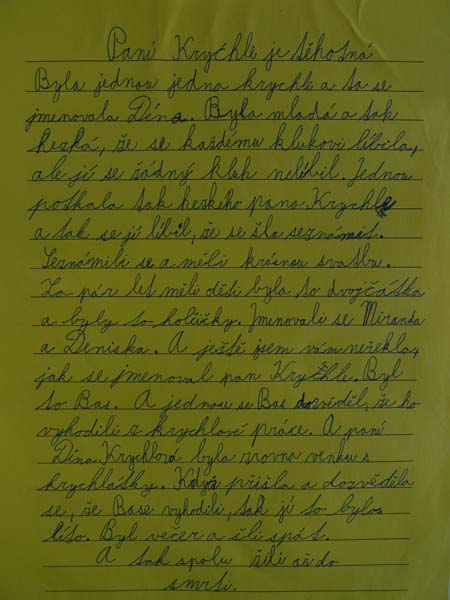 Paní Krychle je těhotná
Byla jednou jedna krychle a ta se
jmenovala Dína. Byla mladá a tak
hezká, že se každému klukovi líbila,
ale jí se žádný kluk nelíbil. Jednou
potkala tak hezkého pana Krychle
a tak se jí líbil, že se šla seznámit.
Seznámili se a měli krásnou svatbu.
Za pár let měli děti byla to dvojčátka
a byly to holčičky. Jmenovali se Miranda
a Deniska. A ještě jsem vám neřekla,
jak se jmenoval pan Krychle. Byl
to Bas. A jednou se Bas dozvěděl, že ho
vyhodili z krychlové práce. A paní
Dína Krychlová byla zrovna venku s
krychlátky. Když přišla a dozvěděla
se, že Base vyhodili, tak jí to bylo
líto. Byl večer a šli spát.
A tak spolu žili až do
smrti.